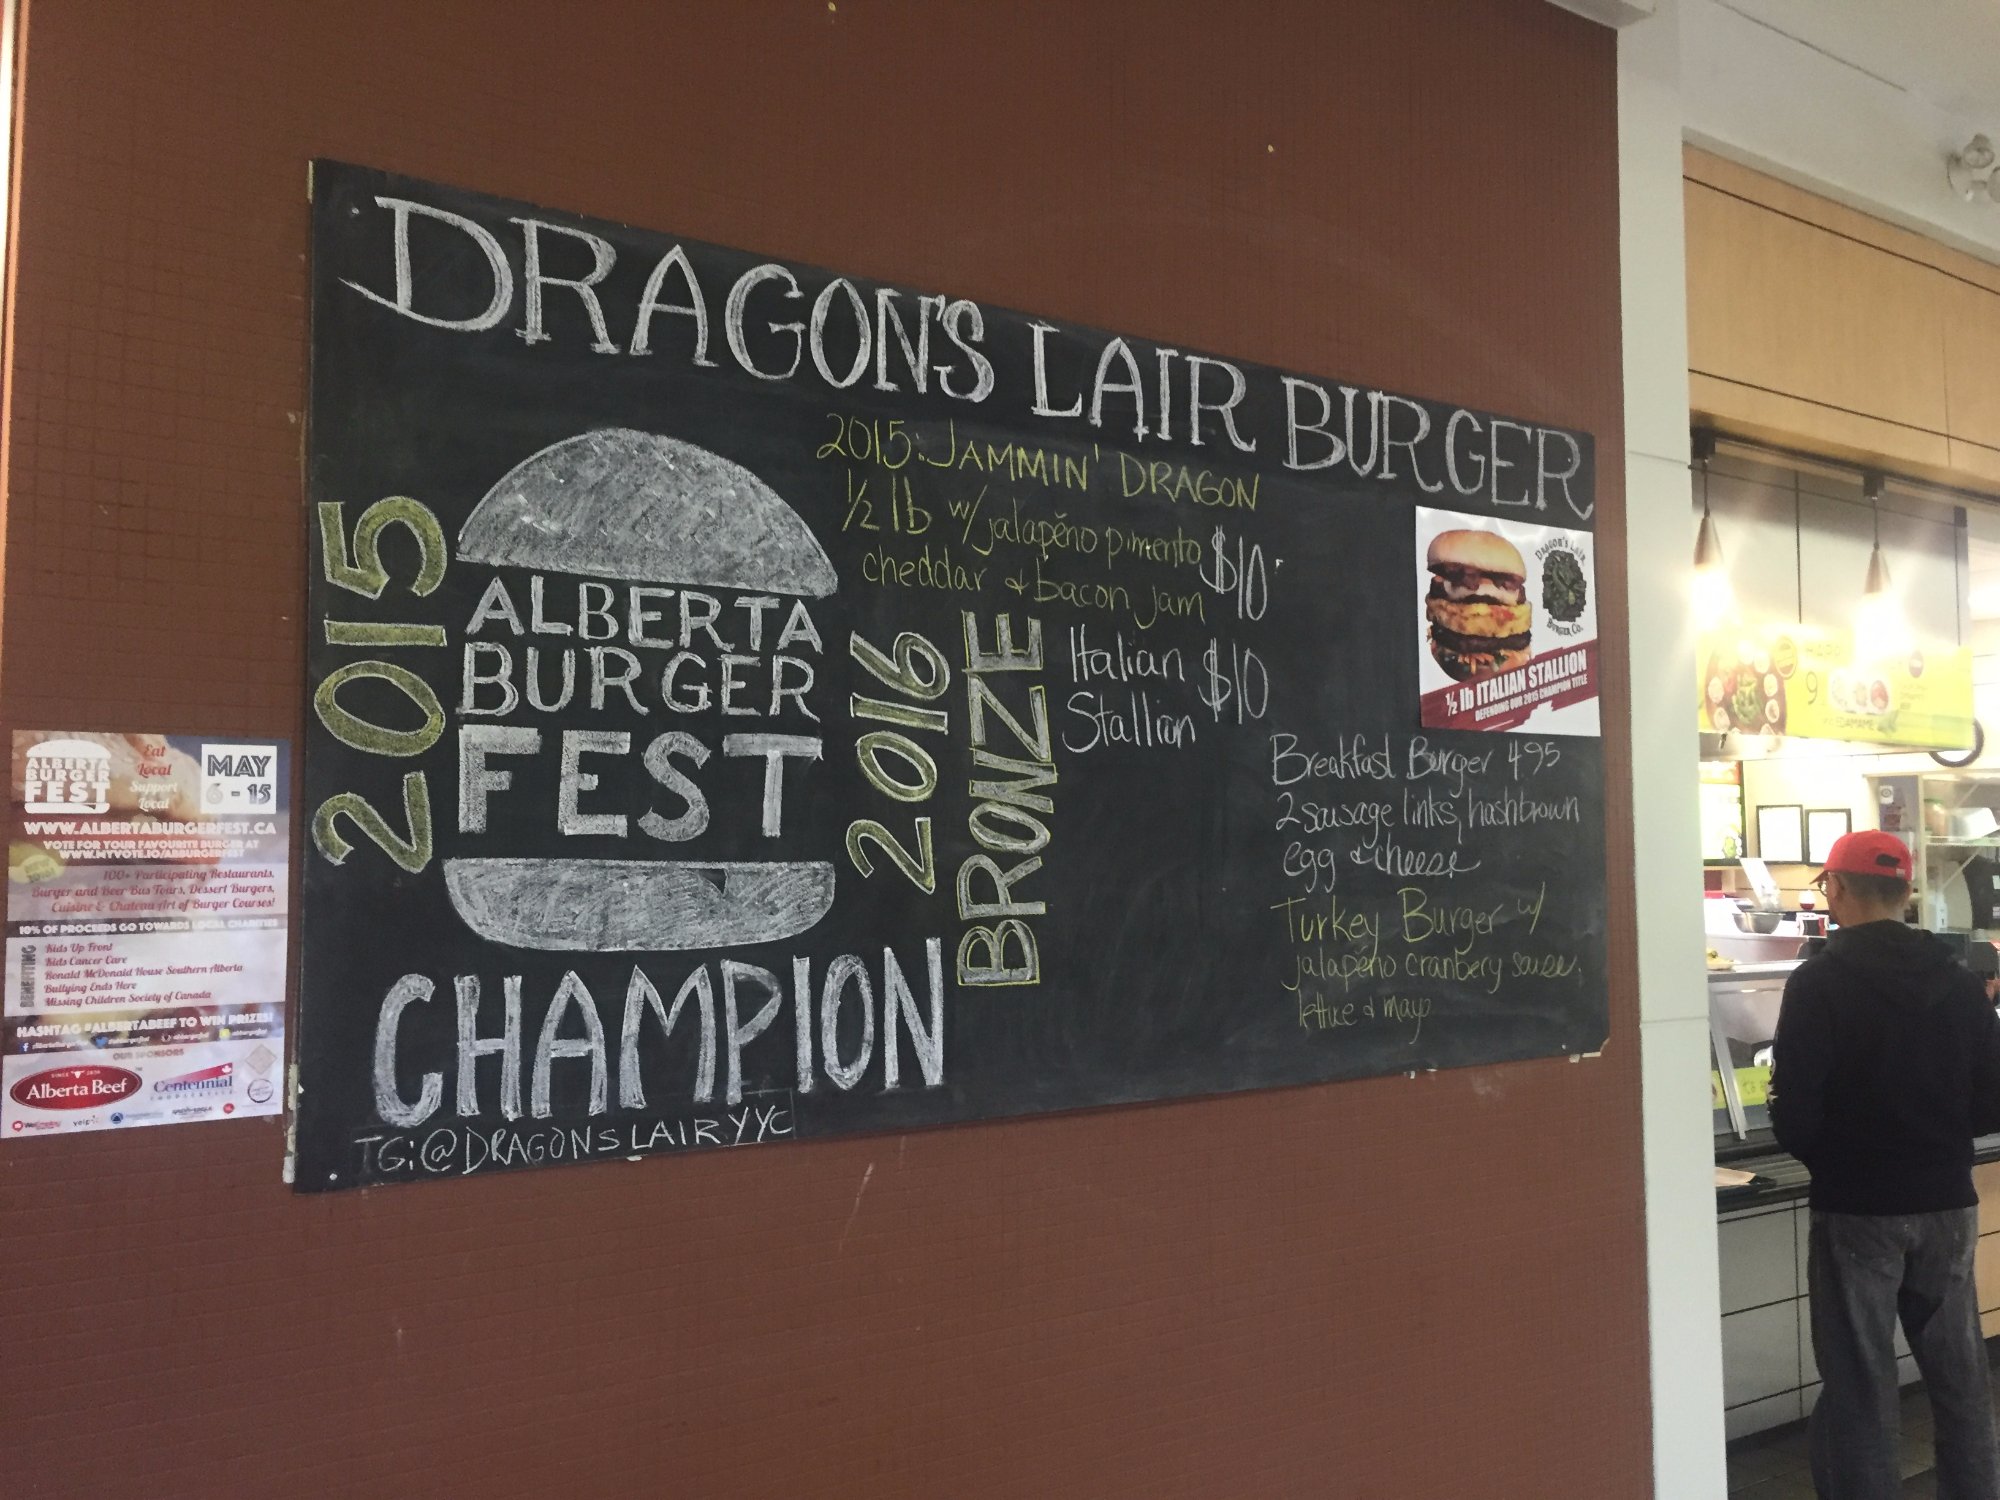 DRAGON'S LAIR BURGER
2015
ALBERTA
BURGER
FEST
CHAMPION
IG:@DRAGONSLAIRYYC
2016
BRONZE
2015: JAMMIN' DRAGON
1/2 lb w/ jalapeño pimento
cheddar & bacon jam
$10
Italian
Stallion
$10
DRAGON'S LAIR
BURGER CO.
1/2 lb ITALIAN STALLION
DEFENDING OUR 2015 CHAMPION TITLE
Breakfast Burger 4.95
2 sausage links, hashbrown
egg & cheese
Turkey Burger w/
jalapeño cranberry sauce,
lettuce & mayo
ALBERTA
BURGER
FEST
Eat
Local
Support
Local
MAY
6 - 15
WWW.ALBERTABURGERFEST.CA
VOTE FOR YOUR FAVOURITE BURGER AT
WWW.MYVOTE.IO/ABBURGERFEST
100+ Participating Restaurants,
Burger and Beer Bus Tours, Dessert Burgers,
Cuisine & Chateau Art of Burger Courses!
10% OF PROCEEDS GO TOWARDS LOCAL CHARITIES
BENEFITING
Kids Up Front
Kids Cancer Care
Ronald McDonald House Southern Alberta
Bullying Ends Here
Missing Children Society of Canada
HASHTAG #ALBERTABEEF TO WIN PRIZES!
OUR SPONSORS
Alberta Beef
Centennial
FOODSERVICE
yelp
EDAMAME